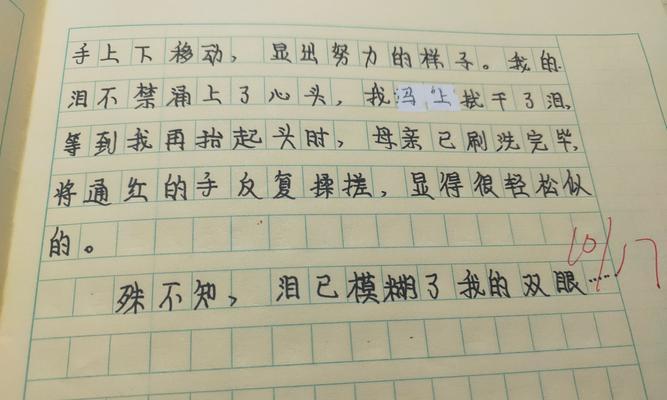 手上下移动，显出努力的样子。我的
泪不禁涌上了心头，我冯上拭干了泪，
等到我再抬起头时，母亲已刷洗完毕，
将通红的手反复揉搓，显得很轻松似
的。
殊不知，泪已模糊了我的双眼……
10/17